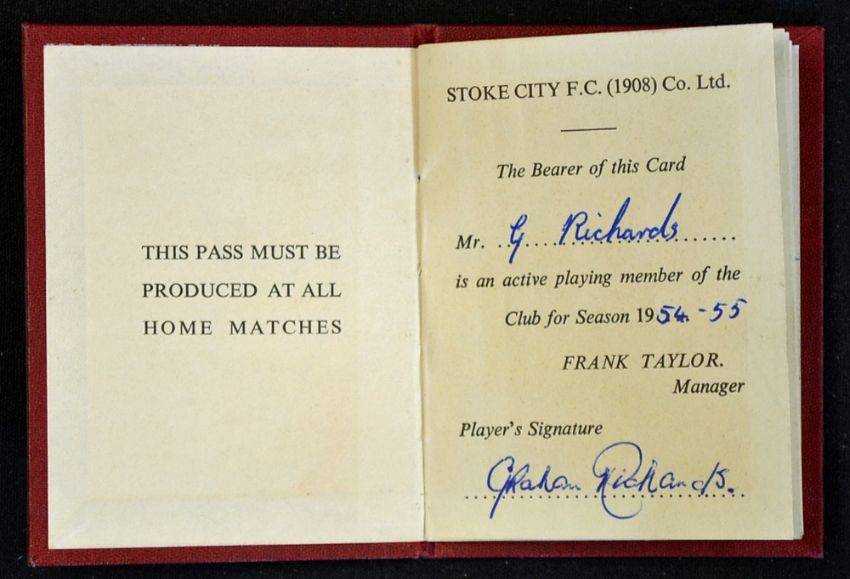 THIS PASS MUST BE
PRODUCED AT ALL
HOME MATCHES
STOKE CITY F.C. (1908) Co. Ltd.
The Bearer of this Card
Mr. G Richards
is an active playing member of the
Club for Season 1954-55
FRANK TAYLOR.
Manager
Player's Signature
Graham Richards.